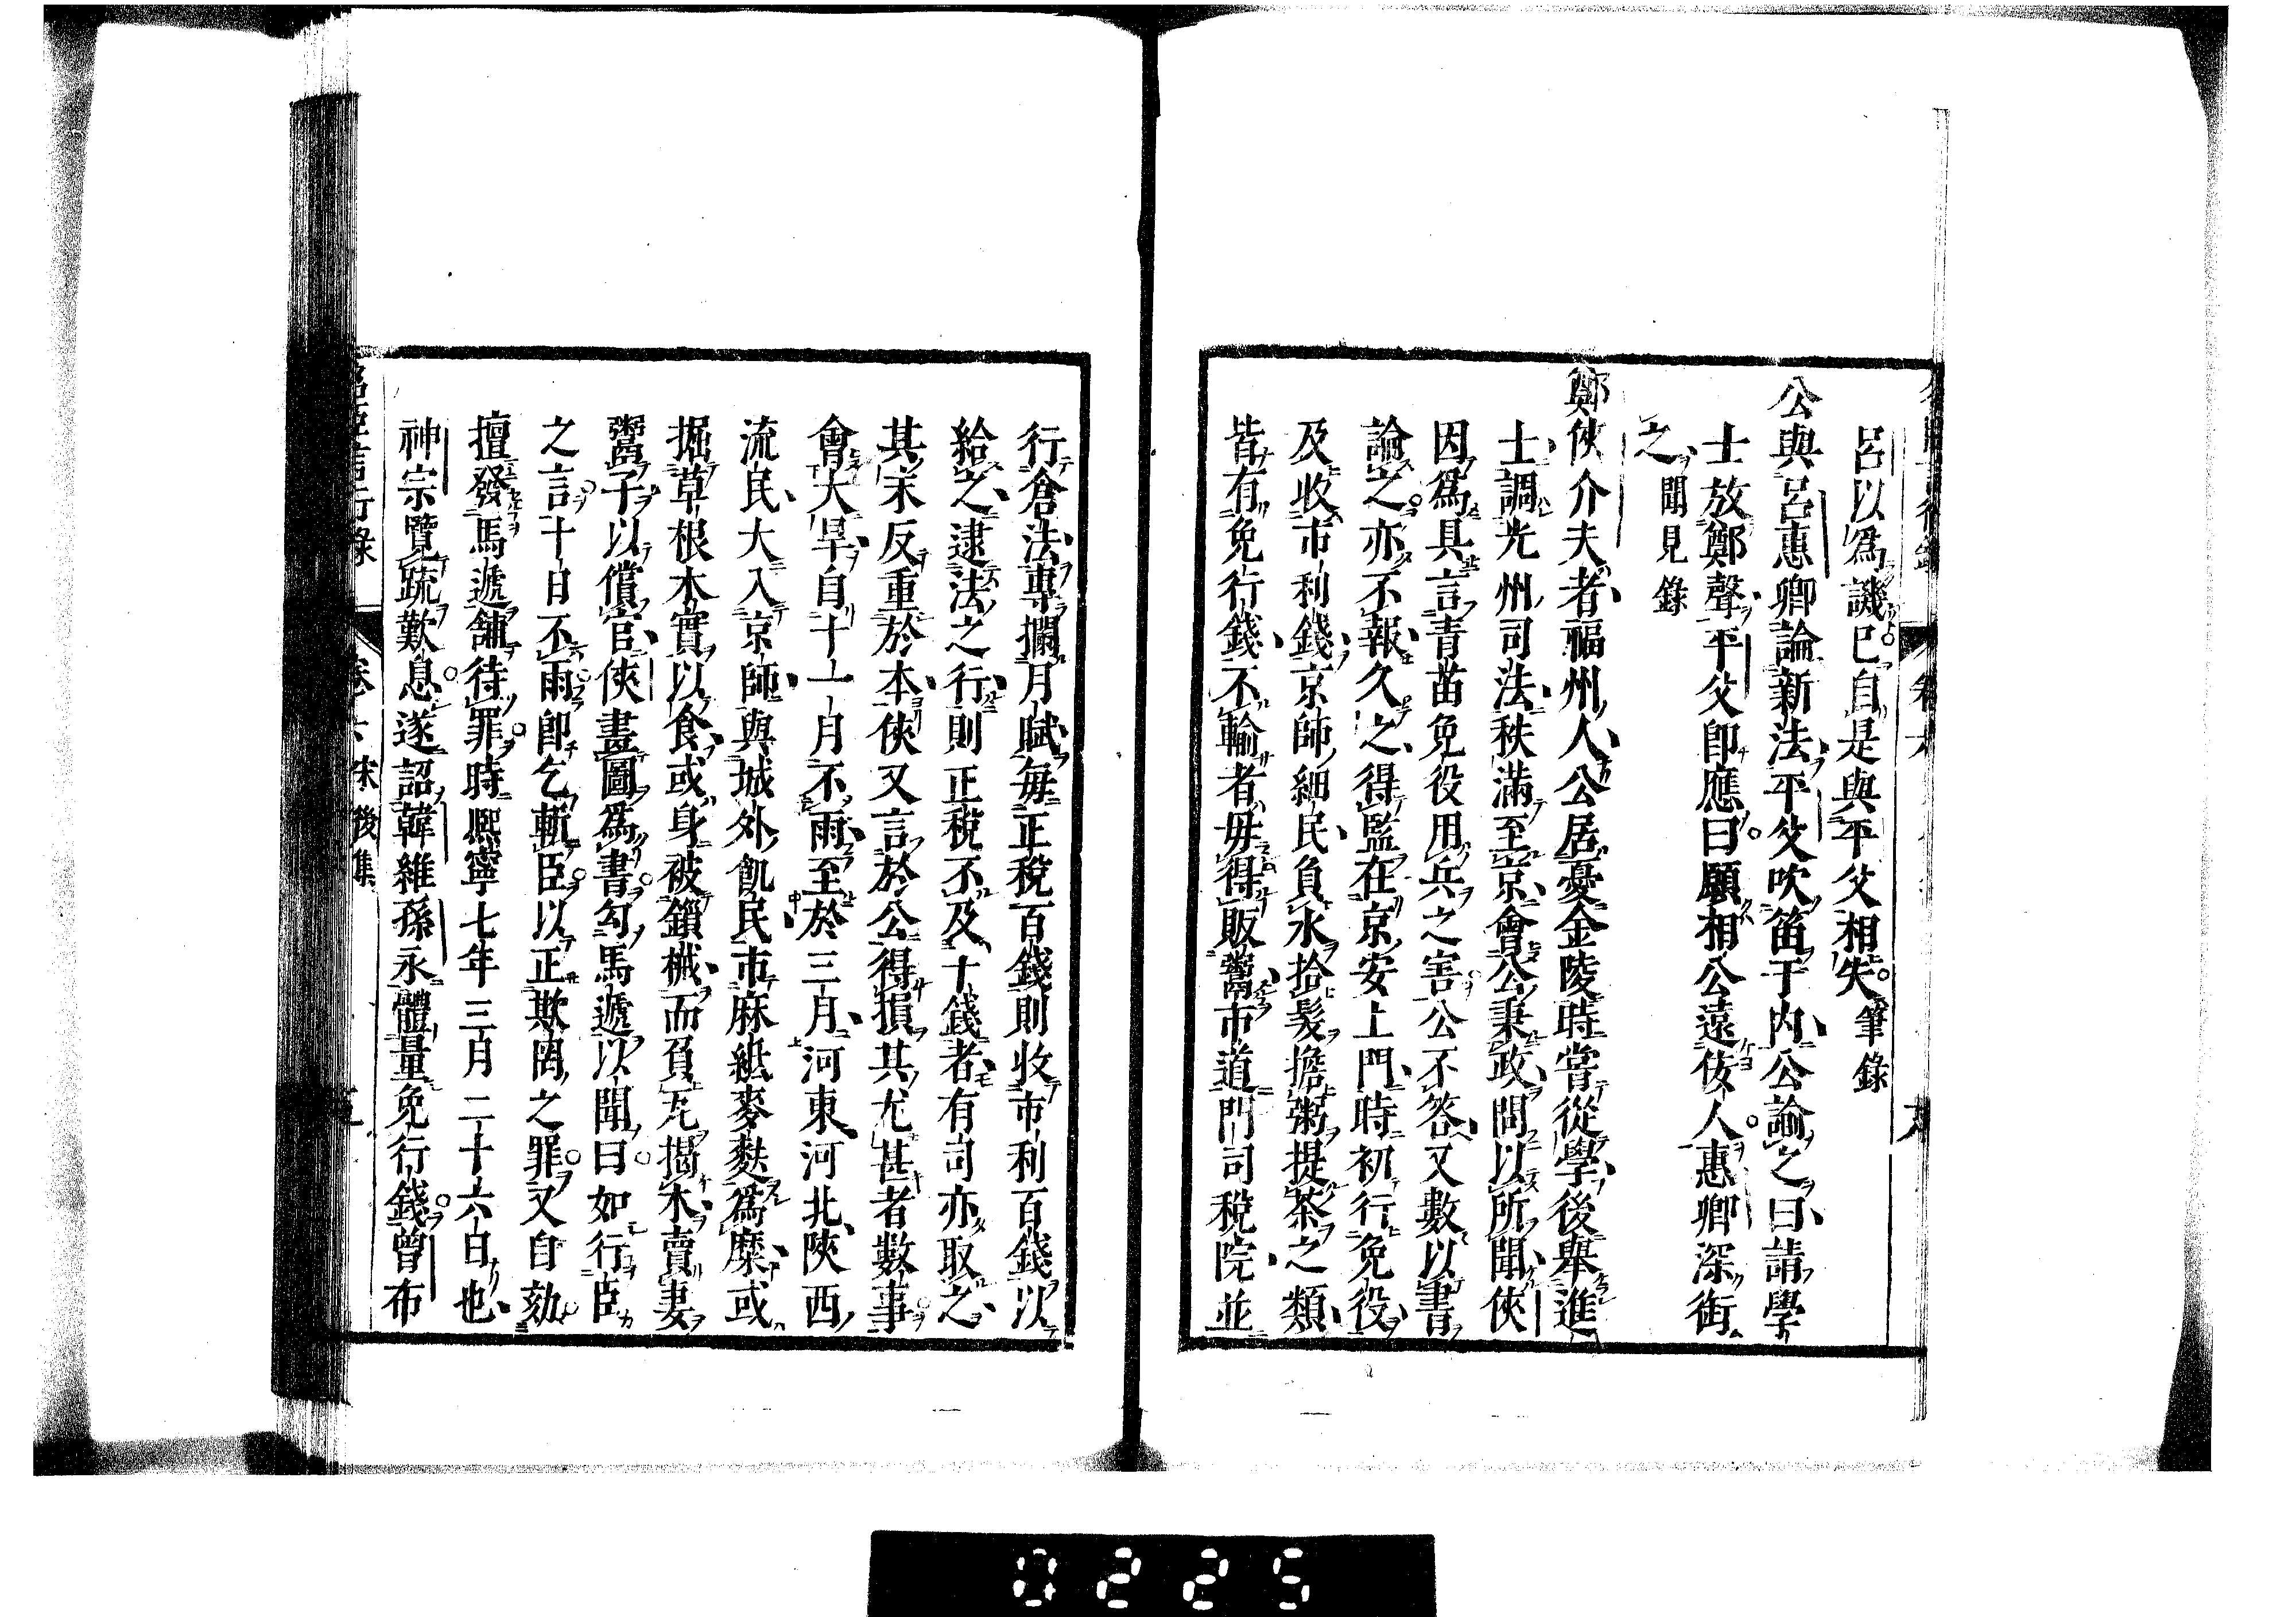 呂以爲譏己自是與平父相失筆錄
公與呂惠卿論新法平父吹笛于內公諭之曰請學
士放鄭聲平父即應曰願相公遠佞人惠卿深銜
之聞見錄
鄭俠介夫者福州人公居憂金陵時嘗從學後舉進
士調光州司法秩滿至京會公秉政問以所聞俠
因爲具言青苗免役用兵之害公不答又數以書
諭之亦不報久之得監在京安上門時初行免役
及收市利錢京師細民負水拾髮擔粥提茶之類
皆有免行錢不輸者毋得販鬻市道門司稅院並
行倉法專攔月賦每正稅百錢則收市利百錢以
給之逮法之行則正稅不及十錢者有司亦取之
其末反重於本俠又言於公得損其尤甚者數事
會大旱自十一月不雨至於三月河東河北陝西
流民大入京師與城外飢民市麻紙麥麩爲糜或
掘草根木實以食或身被鎖械而負瓦揭木賣妻
鬻子以償官俠畫圖爲書勾馬遞以聞曰如行臣
之言十日不雨即乞斬臣以正欺罔之罪又自劾
擅發馬遞舖待罪時熙寧七年三月二十六日也
神宗覽疏歎息遂詔韓維孫永體量免行錢曾布
名臣言行錄 卷六 後集
0225